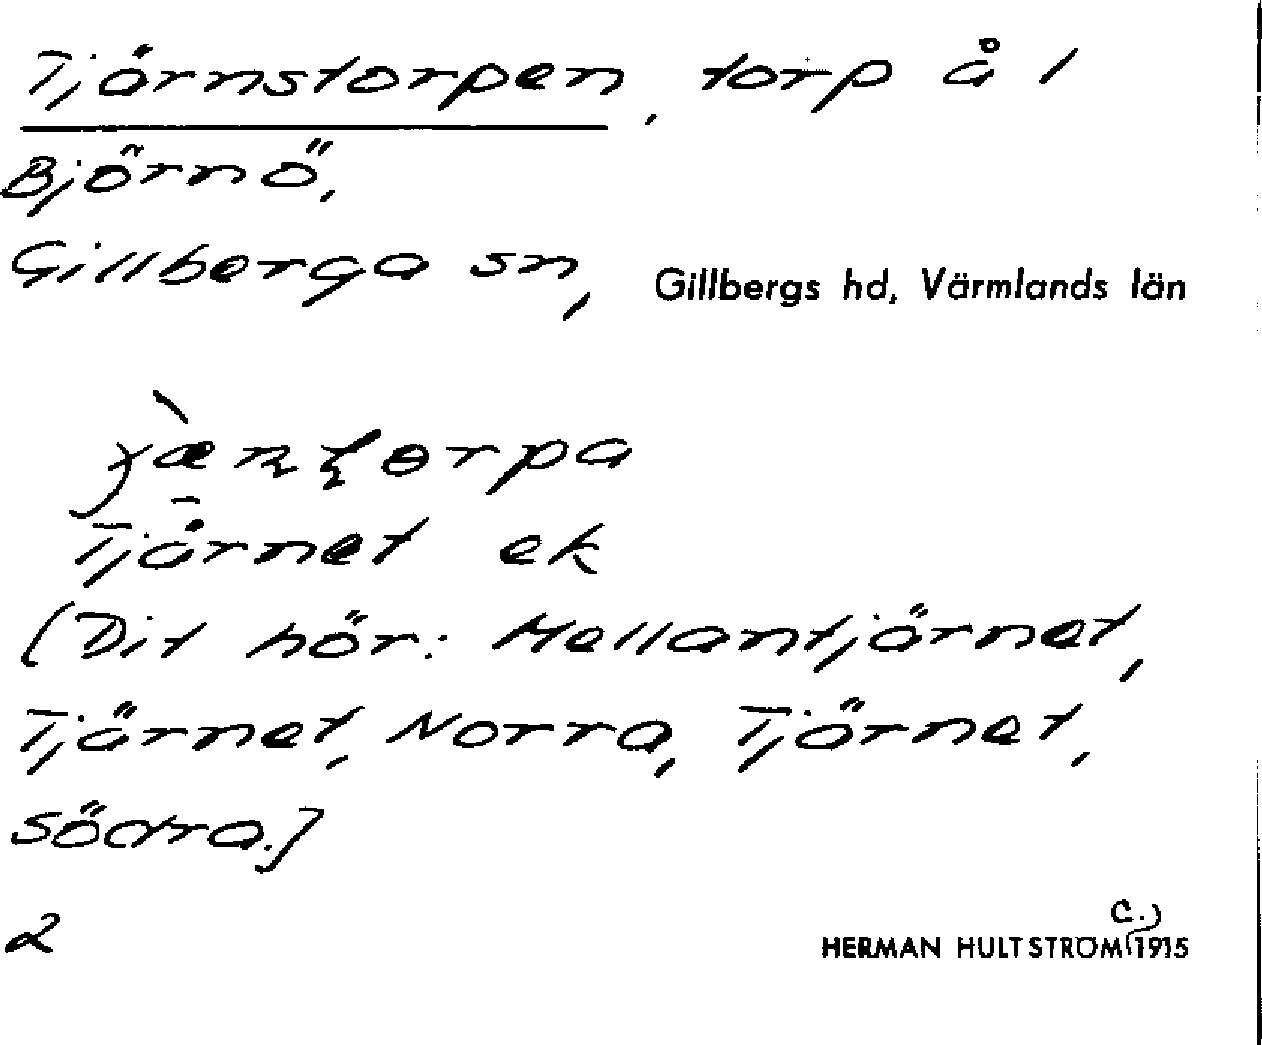 Tjärnstorpen, torp å 1
Björnö,
Gillberga sn, Gillbergs hd, Värmlands län
Tjärnet ek
(Dit hör: Mellantjärnet,
Tjärnet, Norra, Tjärnet,
Södra.)
2
HERMAN HULTSTRÖM (c. 1915